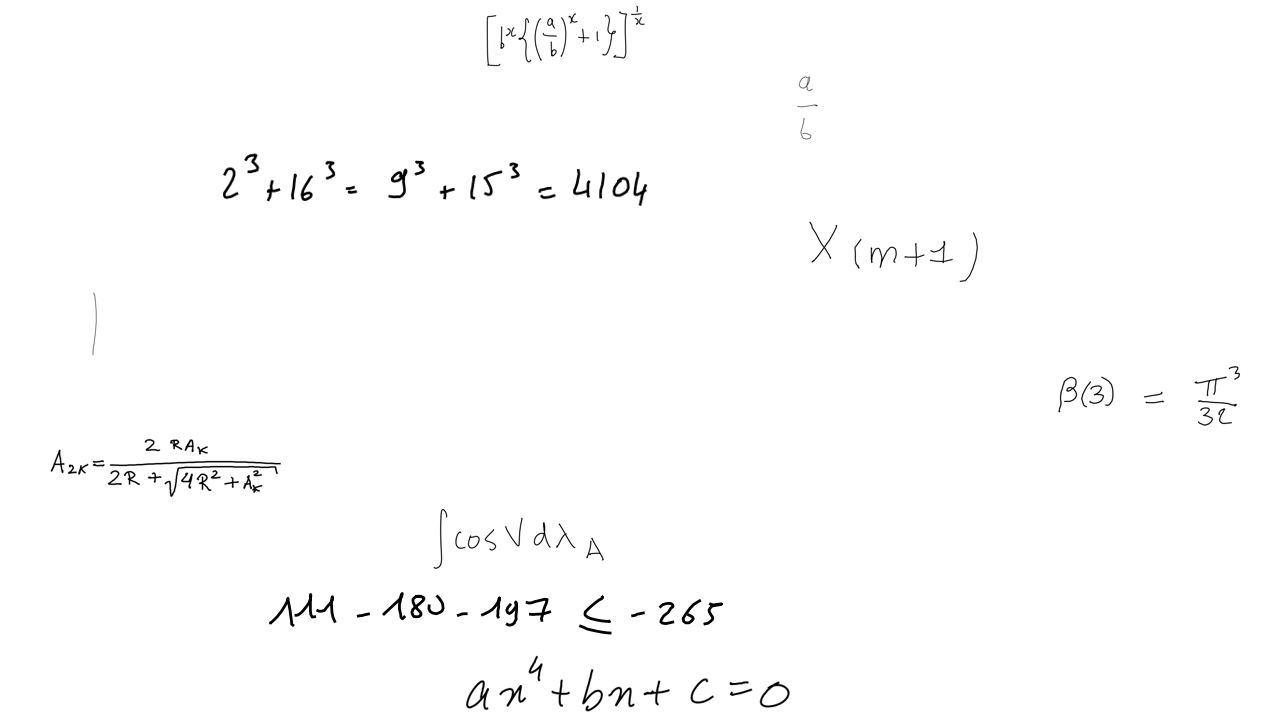 [b^x{(a/b)^x+1}]^{1/x}
a/b
2^3+16^3=9^3+15^3=4104
X(m+1)
|
β(3) = π^3/32
A_{2K}=2RA_K/(2R+√(4R^2+A_K^2))
∫cosVdλ_A
111-180-197≤-265
ax^4+bx+c=0